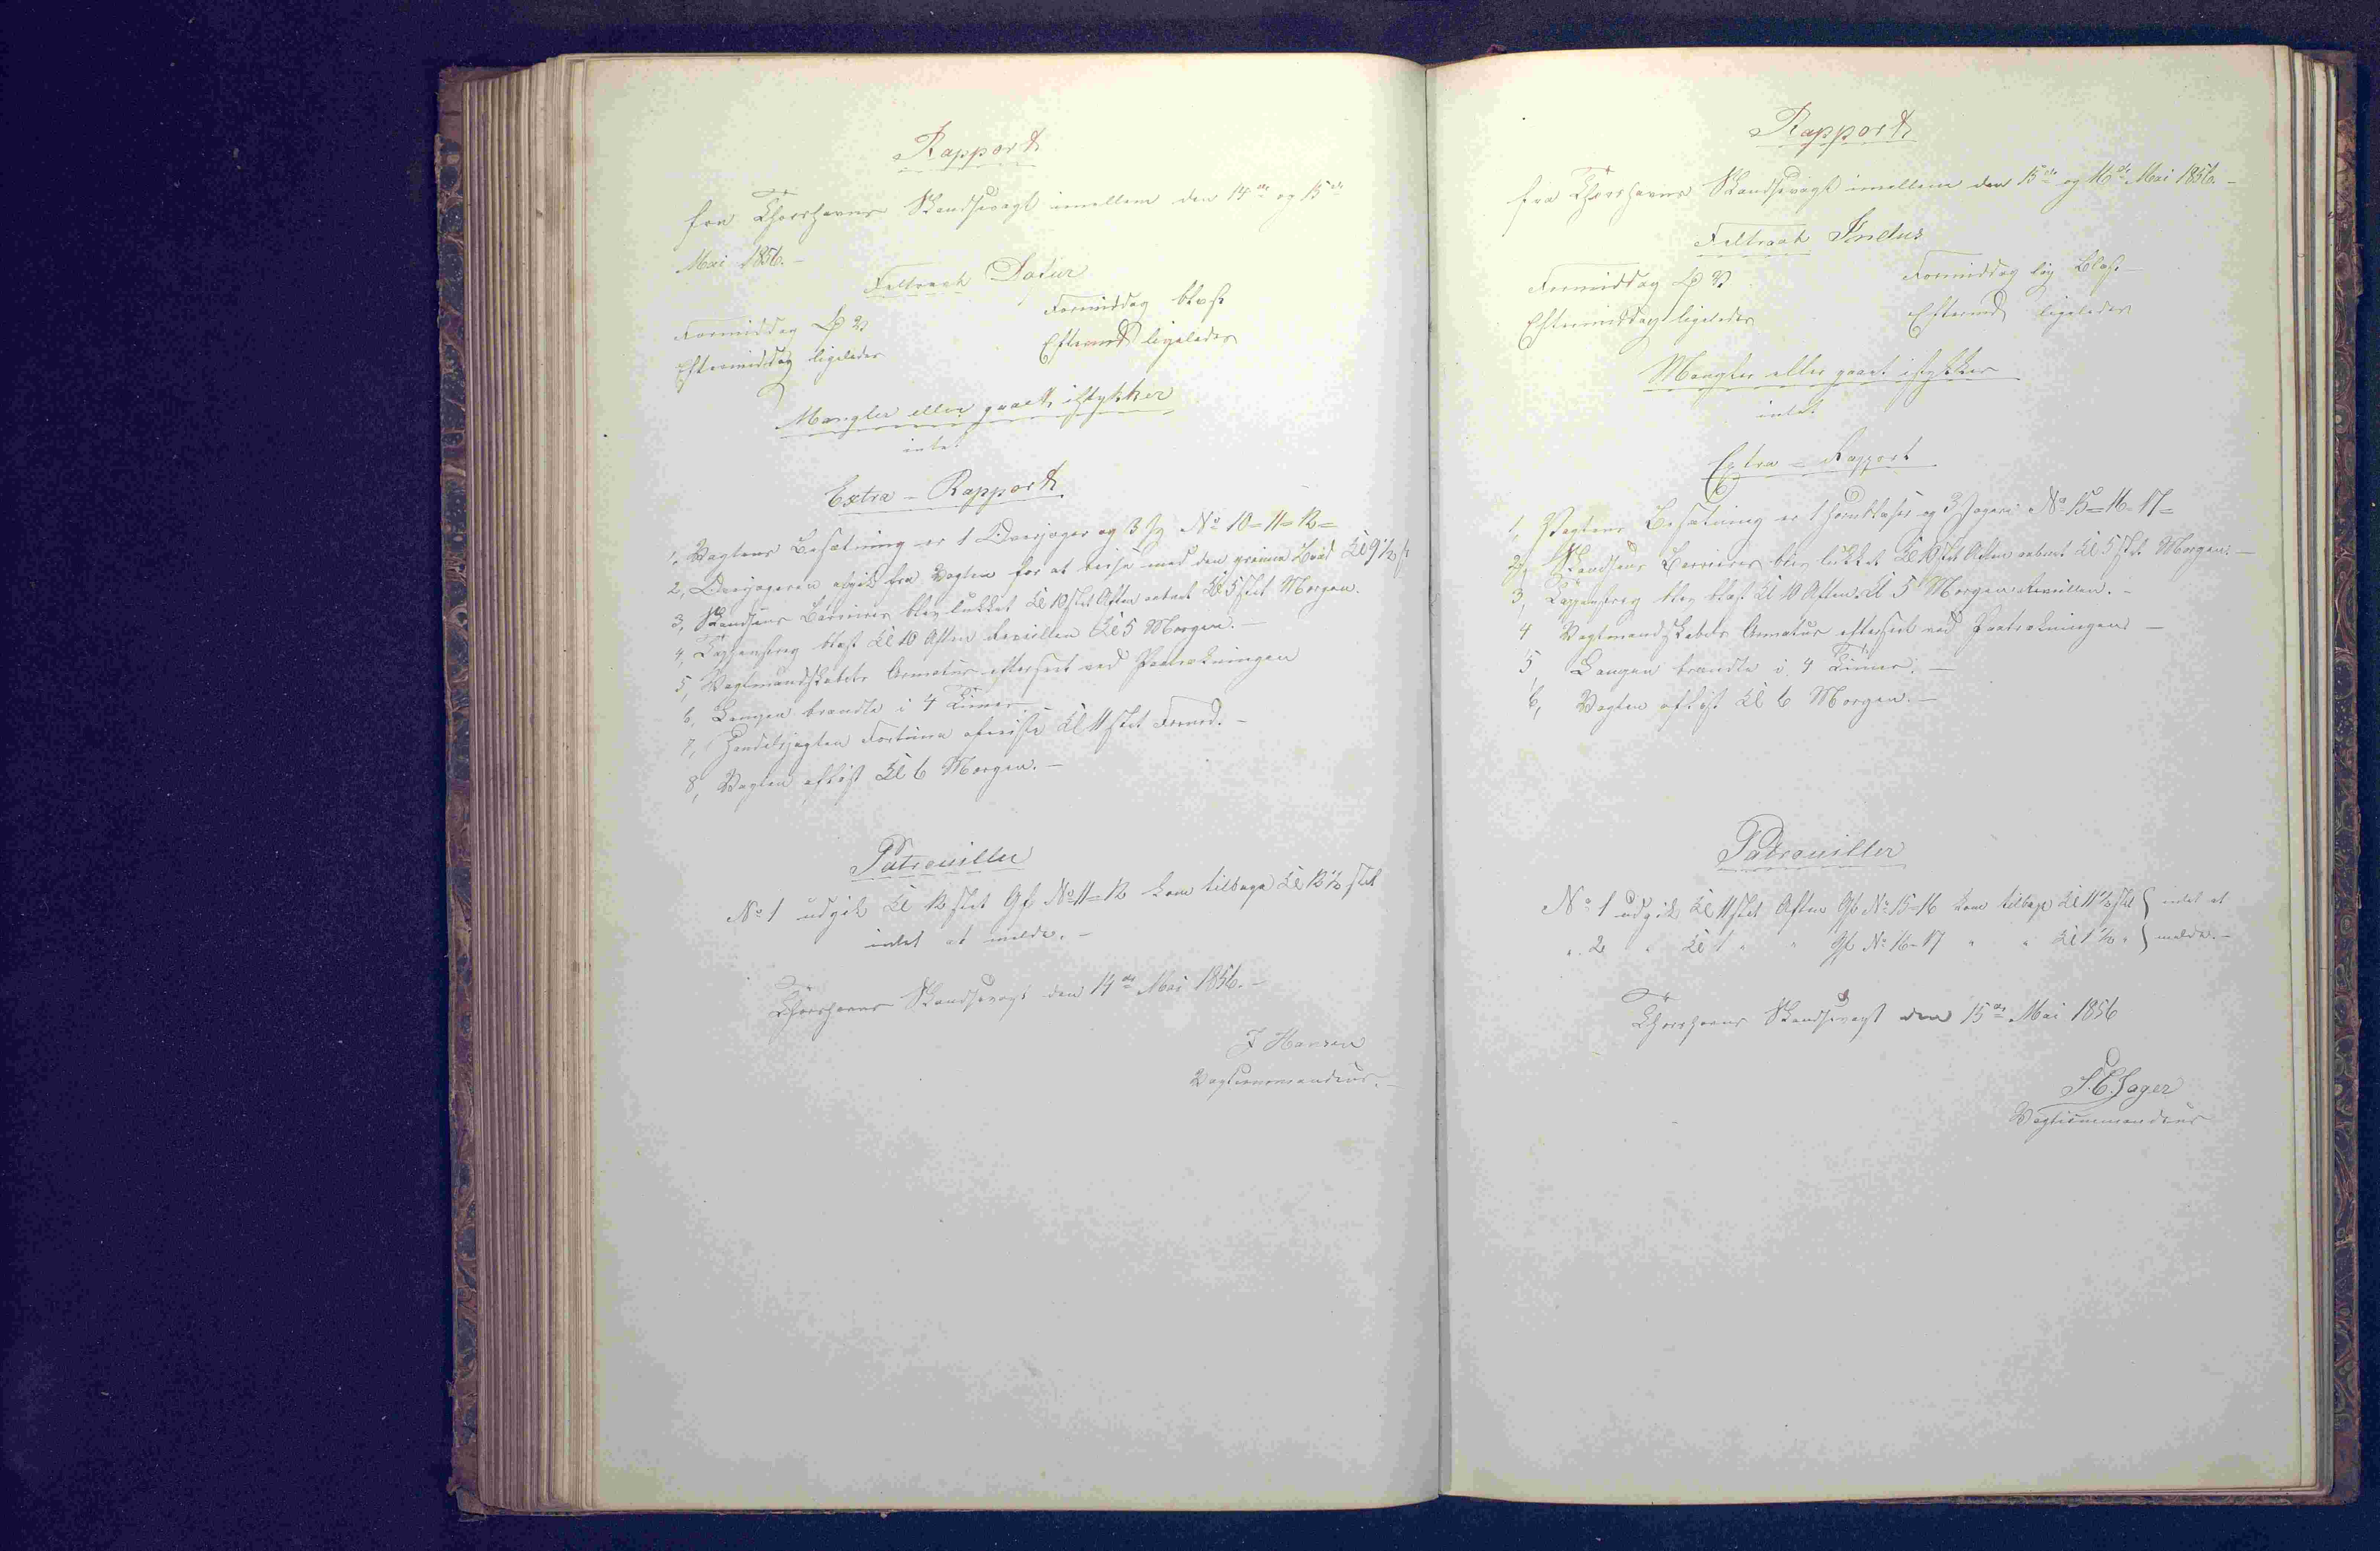 Rapport
fra Thorshavns Skandsevagt imellem den 14de og 15de
Mai 1856. –
Feltraab Datur
Formiddag
Formiddag blæst
Eftermiddag ligeledes
Eftermd ligeledes
Mangler eller gaaet istykker
intet
Extra – Rapport
1, Vagtens Besætning er 1 Overjæger og 3 Jg No 10=11=12=
2, Overjægeren afgik fra Vagten for at reise med den grønne Baad Kl 9½
3, Skandsens Barrierer blev lukket Kl 10 slet Aften aabnet Kl 5 slet Morgen.
4, Tappenstreg blæst Kl 10 Aften Reveillen Kl 5 Morgen. –
5, Vagtmandskabets Armatur efterseet ved Paatrækningen
6, Lampen brændte i 4 Timer
7, Handelsjagten Fortuna afreiste Kl 11 slet Formd. –
8, Vagten afløst Kl 6 Morgen. –
Patrouiller
No 1 udgik Kl 12 slet Gf No 11=12 kom tilbage Kl 12½ slet
intet at melde. –
Thorshavns Skandsevagt den 14de Mai 1856. –
J Hansen
Vagtcommandeur. –
Rapport
fra Thorshavns Skandsevagt imellem den 15de og 16de Mai 1856. –
Feltraab Indus
Formiddag
Formiddag Blæst –
Eftermiddag ligeledes
Eftermd ligeledes
Mangler eller gaaet istykker
intet
Extra – Rapport
1, Vagtens Besætning er 1 Hornblæser og 3 Jægere No 15=16=17=
2, Skandsens Barrierer blev lukket Kl 10 slet Aften aabnet Kl 5 slet Morgen. –
3, Tappenstreg blev blæst Kl 10 Aften. Kl 5 Morgen Reveillen. –
4 Vagtmandskabets Armatur efterseet ved Paatrækningen –
5, Lampen brændte i 4 Timer. –
6, Vagten afløst Kl 6 Morgen. –
Patrouiller
No 1 udgik Kl 11 slet Aften Gf No 15=16 kom tilbage Kl 11½ slet } intet at
" 2 " Kl 1 " " Gf No 16=17 " " Kl 1½ " } melde. –
Thorshavns Skandsevagt den 15de Mai 1856
Vagtcommandeur